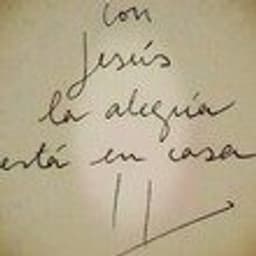 Con
Jesús
la alegría
está en casa